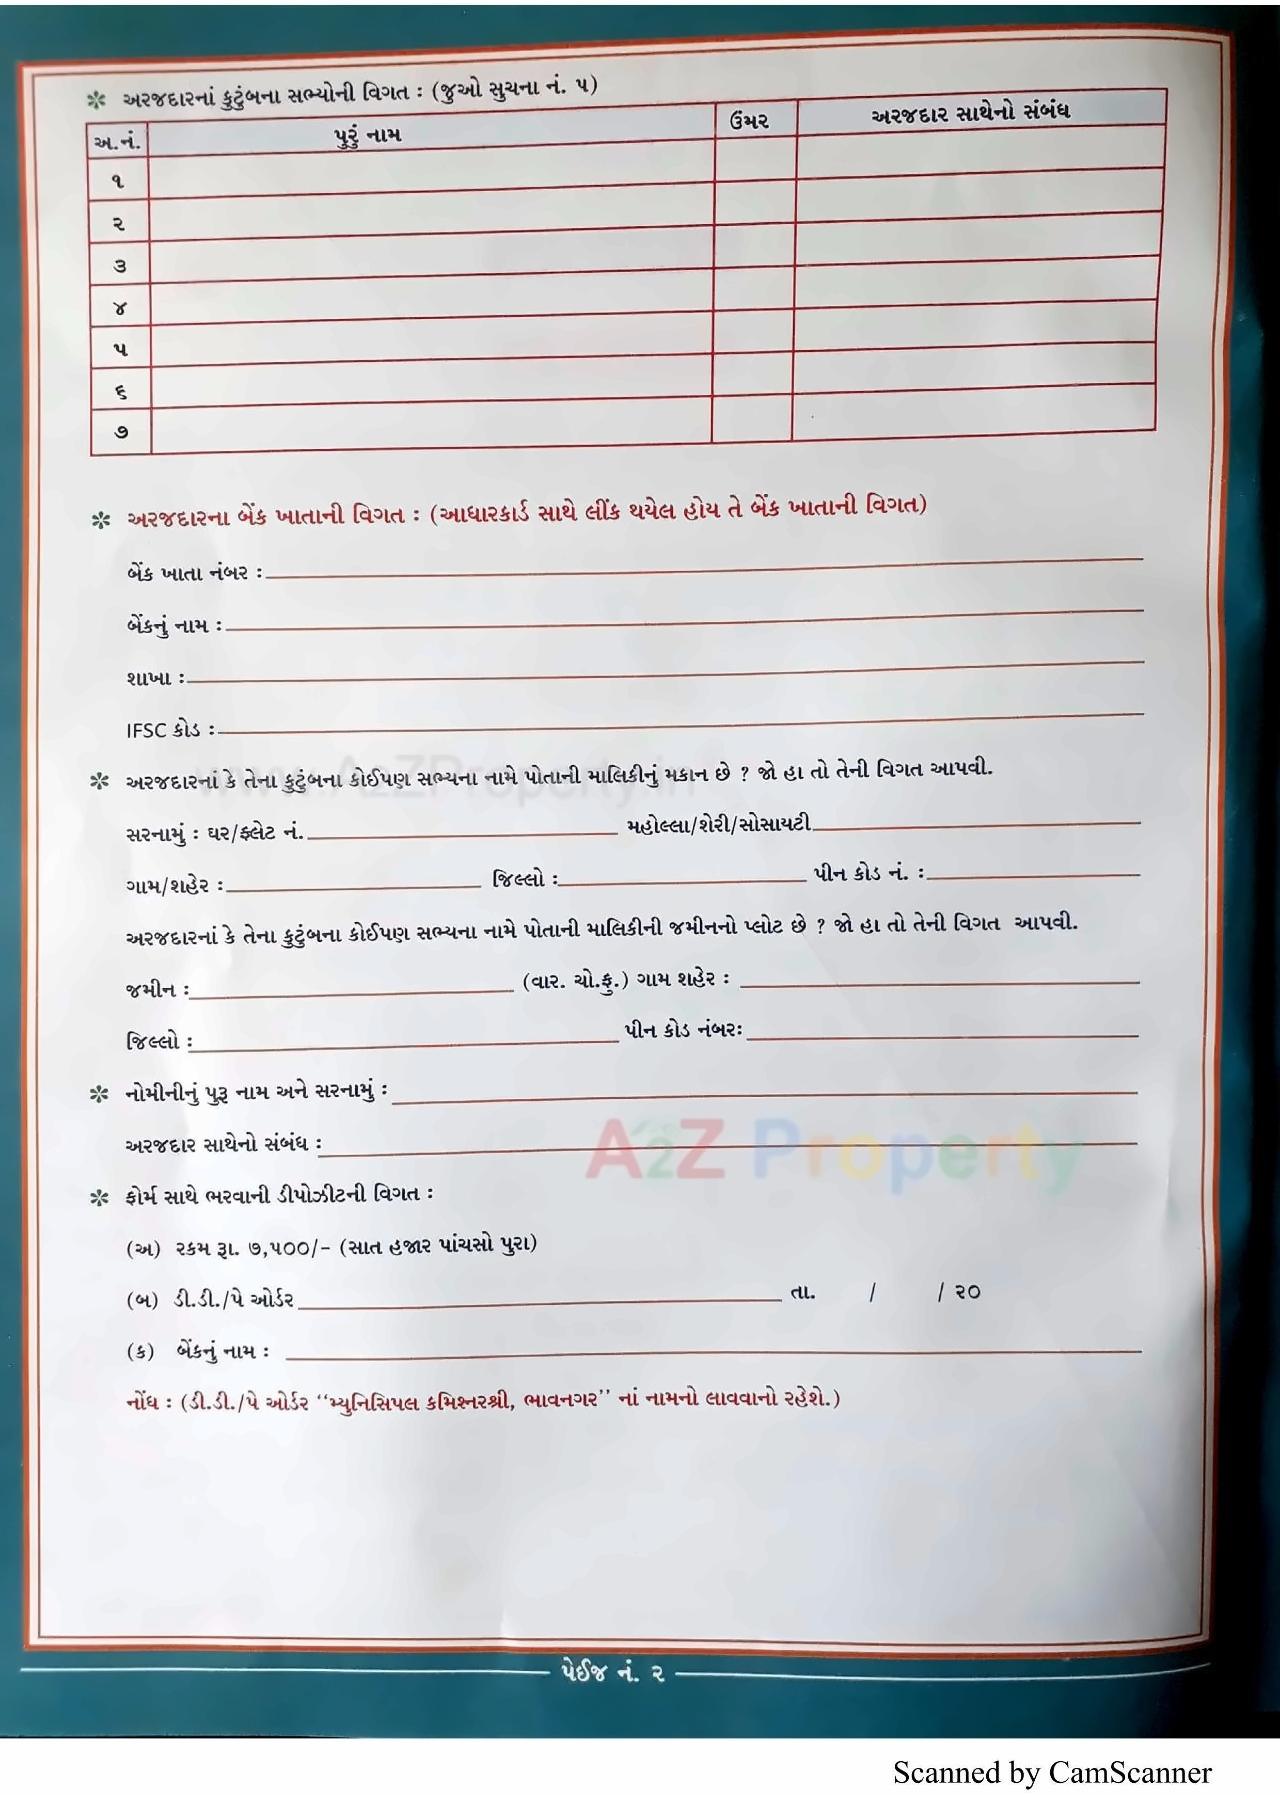 અરજદારનાં કુટુંબના સભ્યોની વિગત : (જુઓ સુચના નં. ૫)
અ.નં. પુરું નામ ઉંમર અરજદાર સાથેનો સંબંધ
૧
૨
૩
૪
૫
૬
૭
અરજદારના બેંક ખાતાની વિગત : (આધારકાર્ડ સાથે લીંક થયેલ હોય તે બેંક ખાતાની વિગત)
બેંક ખાતા નંબર :
બેંકનું નામ :
શાખા :
IFSC કોડ :
www.A2ZProperty.in
અરજદારનાં કે તેના કુટુંબના કોઈપણ સભ્યના નામે પોતાની માલિકીનું મકાન છે ? જો હા તો તેની વિગત આપવી.
સરનામું : ઘર/ફ્લેટ નં. મહોલ્લા/શેરી/સોસાયટી
ગામ/શહેર : જિલ્લો : પીન કોડ નં. :
અરજદારનાં કે તેના કુટુંબના કોઈપણ સભ્યના નામે પોતાની માલિકીની જમીનનો પ્લોટ છે ? જો હા તો તેની વિગત આપવી.
જમીન : (વાર. ચો.ફુ.) ગામ શહેર :
જિલ્લો : પીન કોડ નંબર:
નોમીનીનું પુરૂ નામ અને સરનામું :
અરજદાર સાથેનો સંબંધ :
A2Z Property
ફોર્મ સાથે ભરવાની ડીપોઝીટની વિગત :
(અ) રકમ રૂા. ૭,૫૦૦/- (સાત હજાર પાંચસો પુરા)
(બ) ડી.ડી./પે ઓર્ડર તા. / / ૨૦
(ક) બેંકનું નામ :
નોંધ : (ડી.ડી./પે ઓર્ડર "મ્યુનિસિપલ કમિશ્નરશ્રી, ભાવનગર" નાં નામનો લાવવાનો રહેશે.)
પેઈજ નં. ૨
Scanned by CamScanner